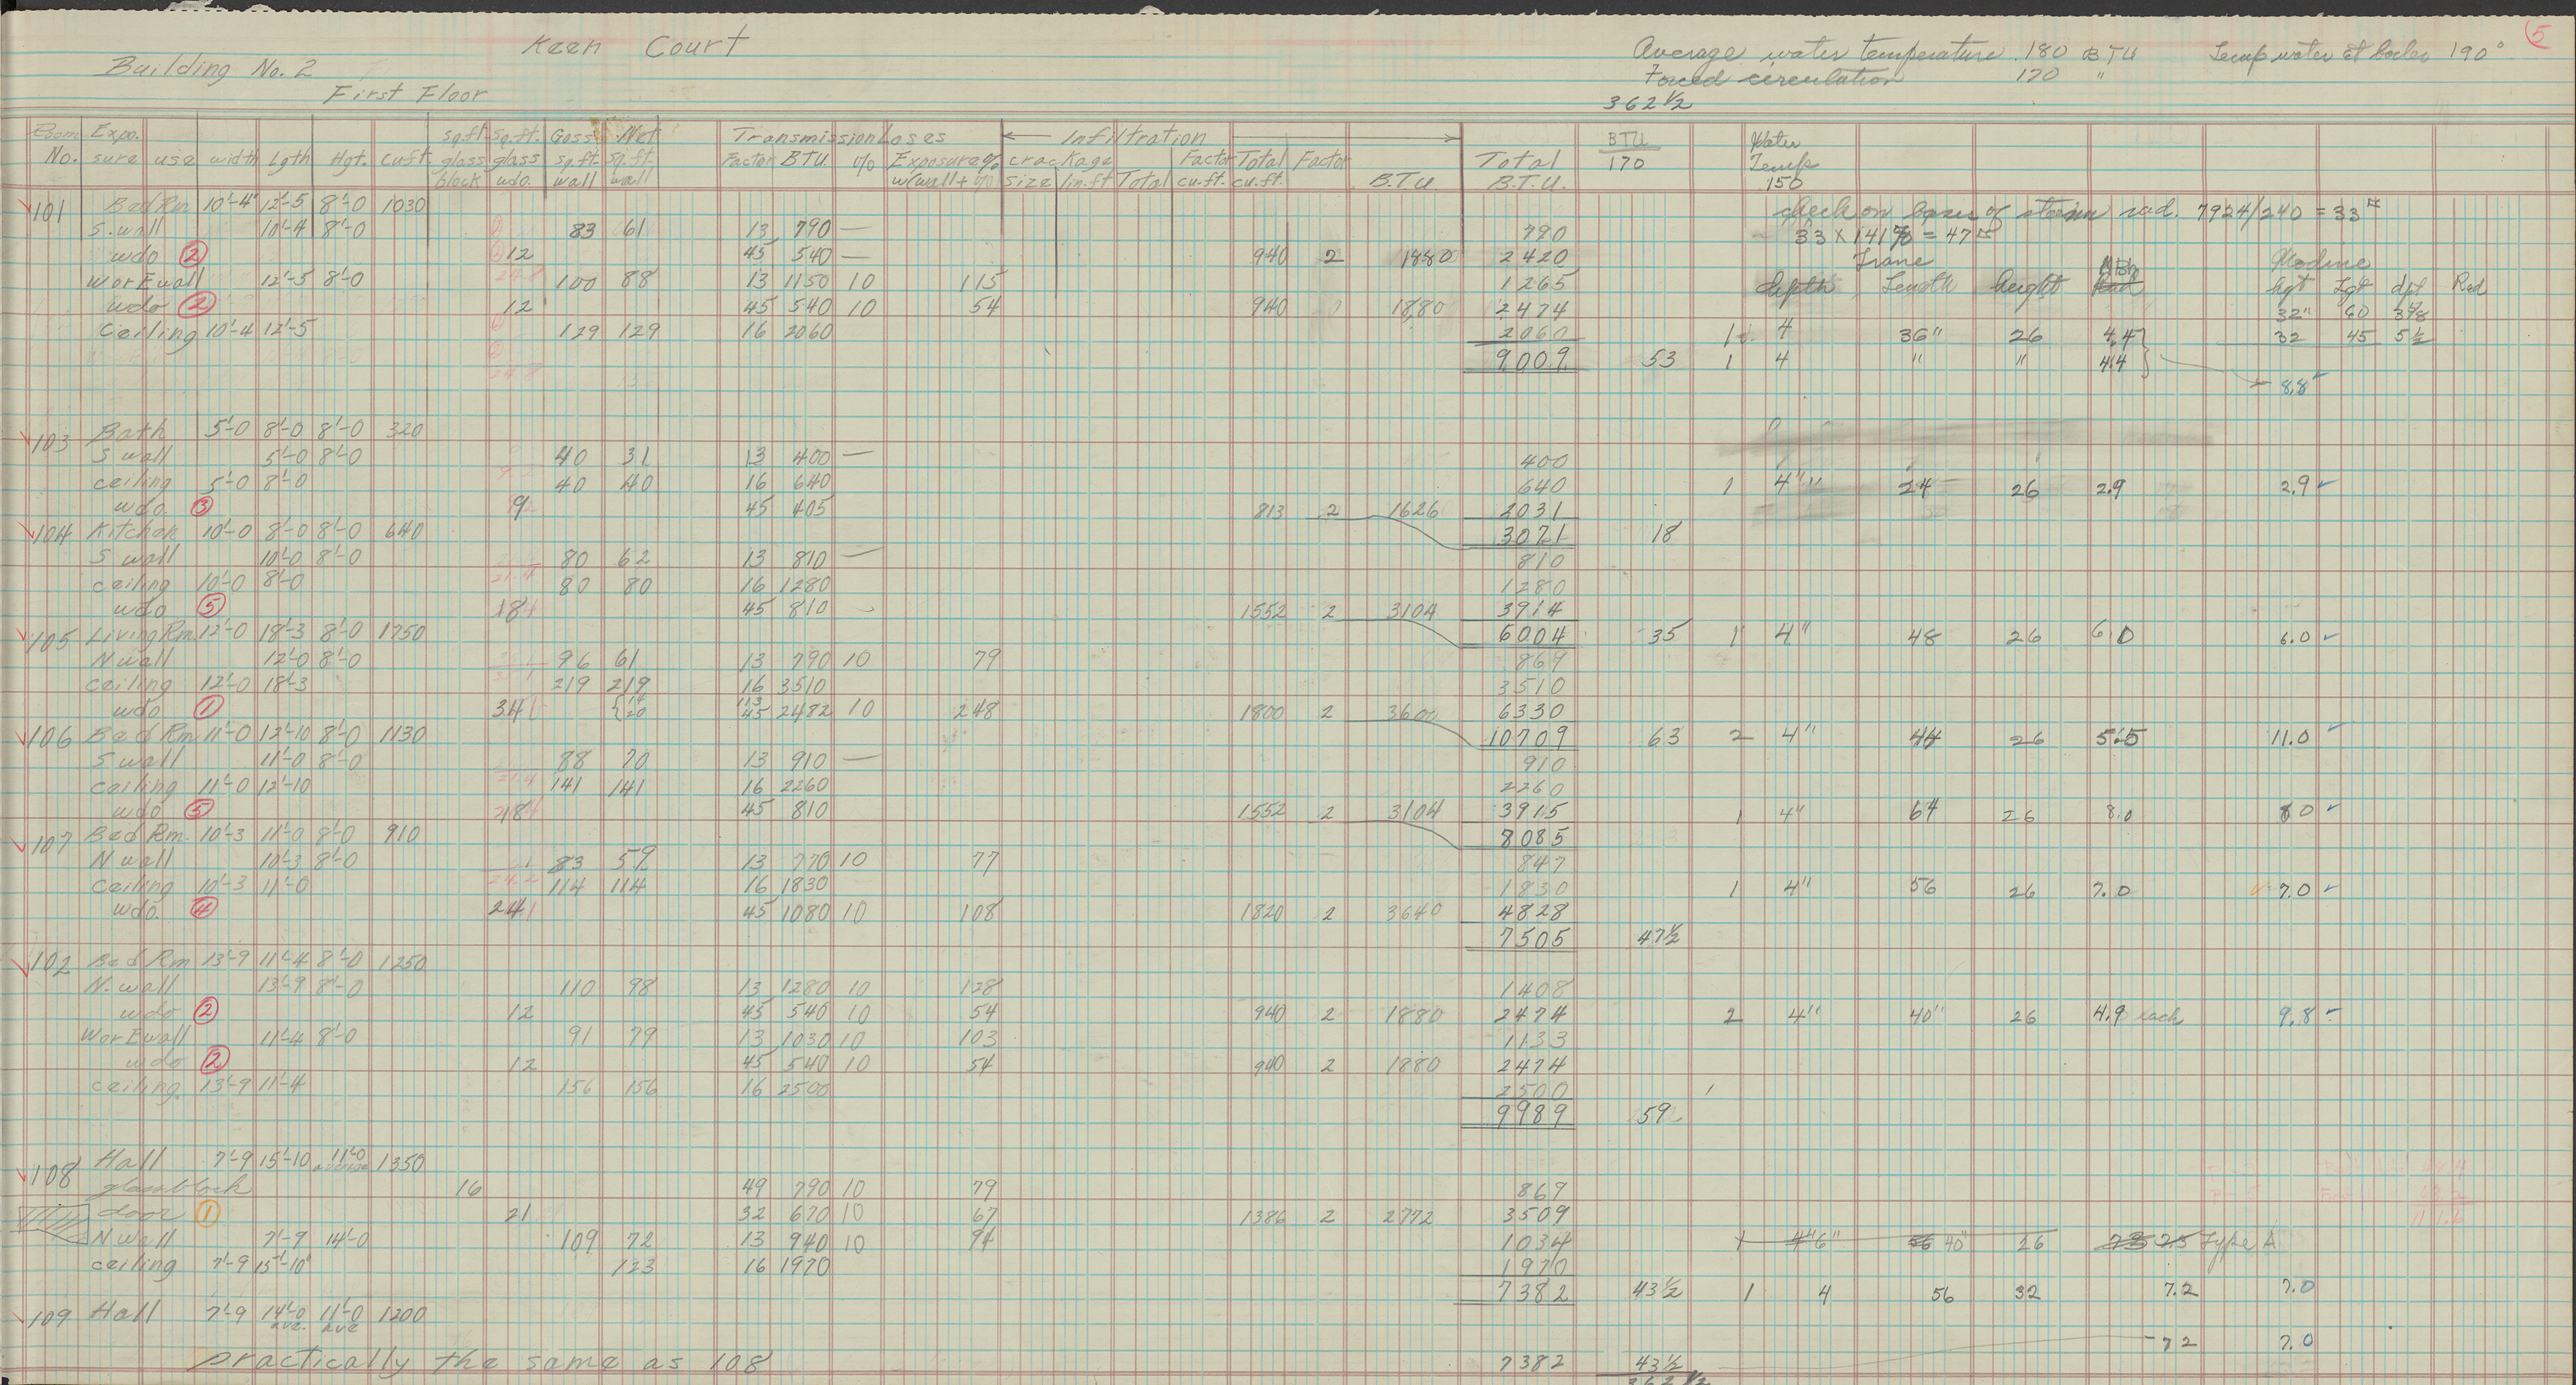 5
Keen Court
Average water temperature 180 BTU Temp water at boiler 190°
Building No. 2
Forced circulation 170 "
First Floor
362 1/2
Room Expo. sq.ft. sq.ft. Goss Net Transmission Loses ← Infiltration → BTU Water
No. sure use width Lgth Hgt. cuft. glass glass sq.ft. sq.ft. Factor BTU % Exposure % crackage Factor Total Factor Total 170 Temp
block wdo. wall wall w(wall + %) size lin.ft Total cu.ft. cu.ft. B.T.U. B.T.U. 150
101 Bed Rm 10'-4" 12'-5 8'-0 1030 check on basis of steam rad. 7924/240 = 33
S. wall 10'-4 8'-0 83 61 13 790 — 790 33 x 141% = 47
wdo 2 12 45 540 — 940 2 1880 2420 Trane Modine
W or E wall 12'-5 8'-0 100 88 13 1150 10 115 1265 depth Length height MBh hgt Lgt dpt Rad
wdo 2 12 45 540 10 54 940 1880 2474 32" 60 3 7/8
Ceiling 10'-4 12'-5 129 129 16 2060 2060 1 4 36" 26 4.4 32 45 5 1/2
9009 53 1 4 " " 4.4
8.8
103 Bath 5'-0 8'-0 8'-0 320
S wall 5'-0 8'-0 40 31 13 400 — 400
ceiling 5'-0 8'-0 40 40 16 640 640 1 4" 24 26 2.9 2.9
wdo. 3 9 45 405 813 2 1626 2031
104 Kitchen 10'-0 8'-0 8'-0 640 3071 18
S wall 10'-0 8'-0 80 62 13 810 — 810
ceiling 10'-0 8'-0 80 80 16 1280 1280
wdo 5 18 45 810 — 1552 2 3104 3914
105 Living Rm. 12'-0 18'-3 8'-0 1750 6004 35 1 4" 48 26 6.0 6.0
N wall 12'-0 8'-0 96 61 13 790 10 79 869
ceiling 12'-0 18'-3 219 219 16 3510 3510
wdo 1 34 { 14 20 113 45 2482 10 248 1800 2 3600 6330
106 Bed Rm 11'-0 12'-10 8'-0 1130 10709 63 2 4" 44 26 5.5 11.0
S wall 11'-0 8'-0 88 70 13 910 — 910
ceiling 11'-0 12'-10 141 141 16 2260 2260
wdo 5 18 45 810 1552 2 3104 3915 1 4" 64 26 8.0 8.0
107 Bed Rm. 10'-3 11'-0 8'-0 910 8085
N wall 10'-3 8'-0 83 59 13 770 10 77 847
Ceiling 10'-3 11'-0 114 114 16 1830 1830 1 4" 56 26 7.0 7.0
wdo. 4 24 45 1080 10 108 1820 2 3640 4828
7505 47 1/2
102 Bed Rm 13'-9 11'-4 8'-0 1250
N. wall 13'-9 8'-0 110 98 13 1280 10 128 1408
wdo 2 12 45 540 10 54 940 2 1880 2474 2 4" 40" 26 4.9 each 9.8
W or E wall 11'-4 8'-0 91 79 13 1030 10 103 1133
wdo 2 12 45 540 10 54 940 2 1880 2474
ceiling. 13'-9 11'-4 156 156 16 2500 2500
9989 59
108 Hall 7'-9 15'-10 11'-0 average 1350
glass block 16 49 790 10 79 869
door 1 21 32 670 10 67 1386 2 2772 3509
N wall 7'-9 14'-0 109 72 13 940 10 94 1034 1 4" 6" 56 40" 26 7.3 7.5 Type A
ceiling 7'-9 15'-10" 123 16 1970 1970
7382 43 1/2 1 4 56 32 7.2 7.0
109 Hall 7'-9 14'-0 ave. 11'-0 ave 1200
7.2 7.0
practically the same as 108 7382 43 1/2
362 1/2